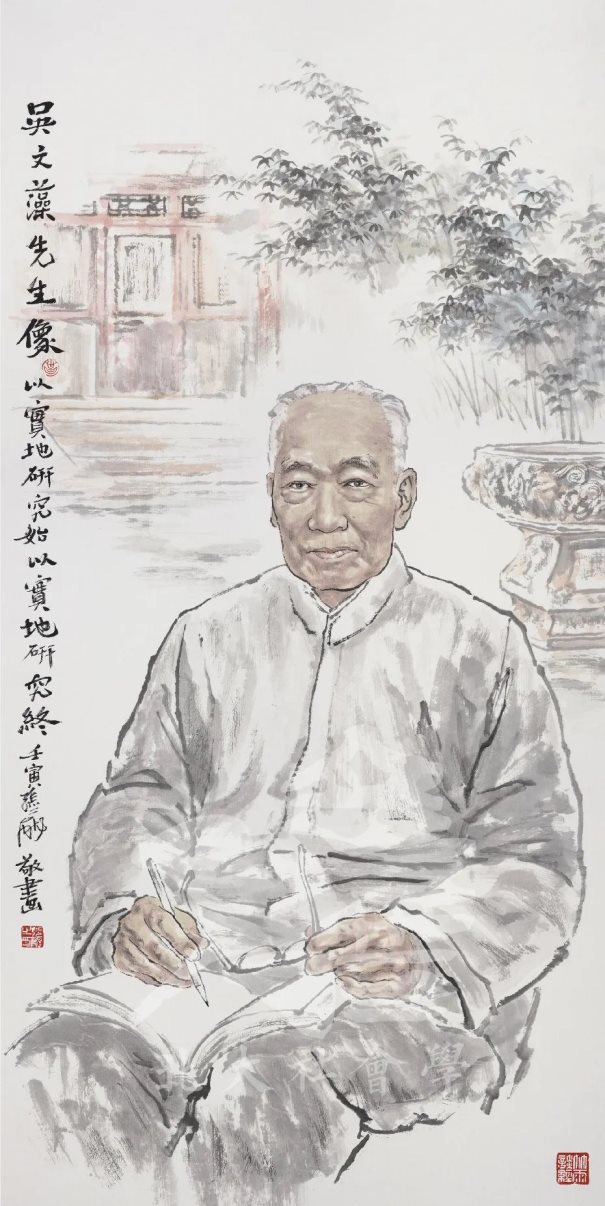 吴文藻先生像
以實地研究始以實地研究終
壬寅張鵬敬畫
北大社會學